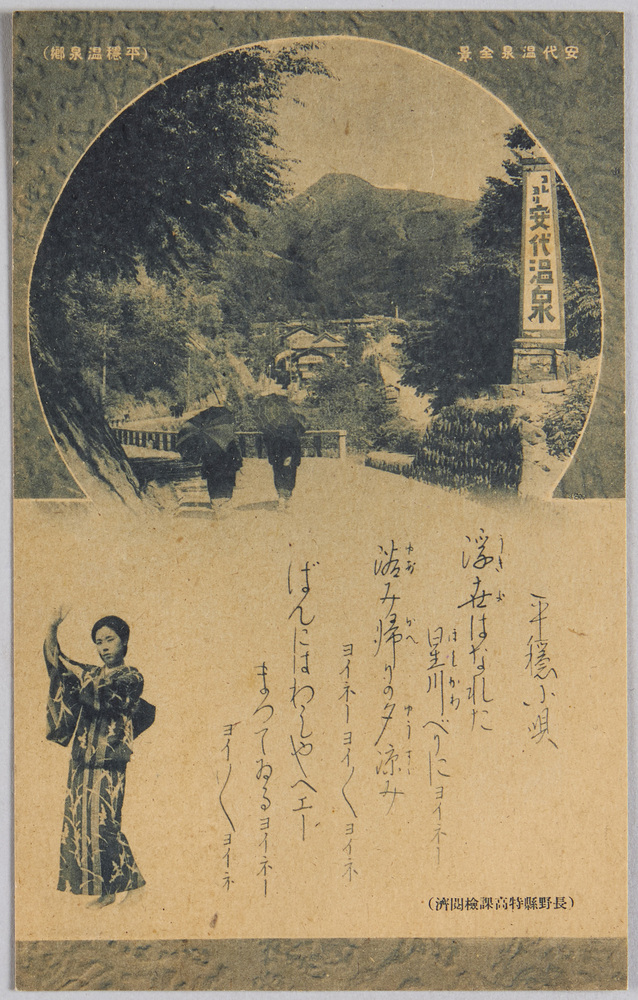 安代温泉全景
(平穩温泉郷)
コレヨリ
安代温泉
平穩小唄
浮世はなれた
星川べりにヨイネー
浴み帰りの夕涼み
ヨイネーヨイ〱ヨイネ
ばんにはわしやヘエー
まつてゐるヨイネー
ヨイ〱ヨイネ
(長野縣特高課檢閲濟)